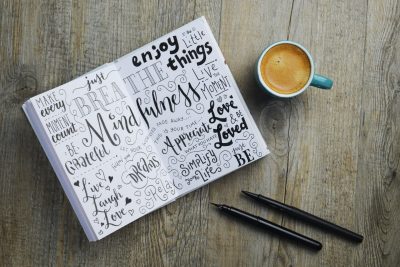 MAKE
every
MOMENT
count
Just
BREATHE
enjoy
THE
Little
things
BE
Grateful
Mindfulness
Live THE
MOMENT
Live
Laugh
Love
IS YOUR TIME
Appreciate
Simplify
Life
Love
&
be
Loved
Just
BE